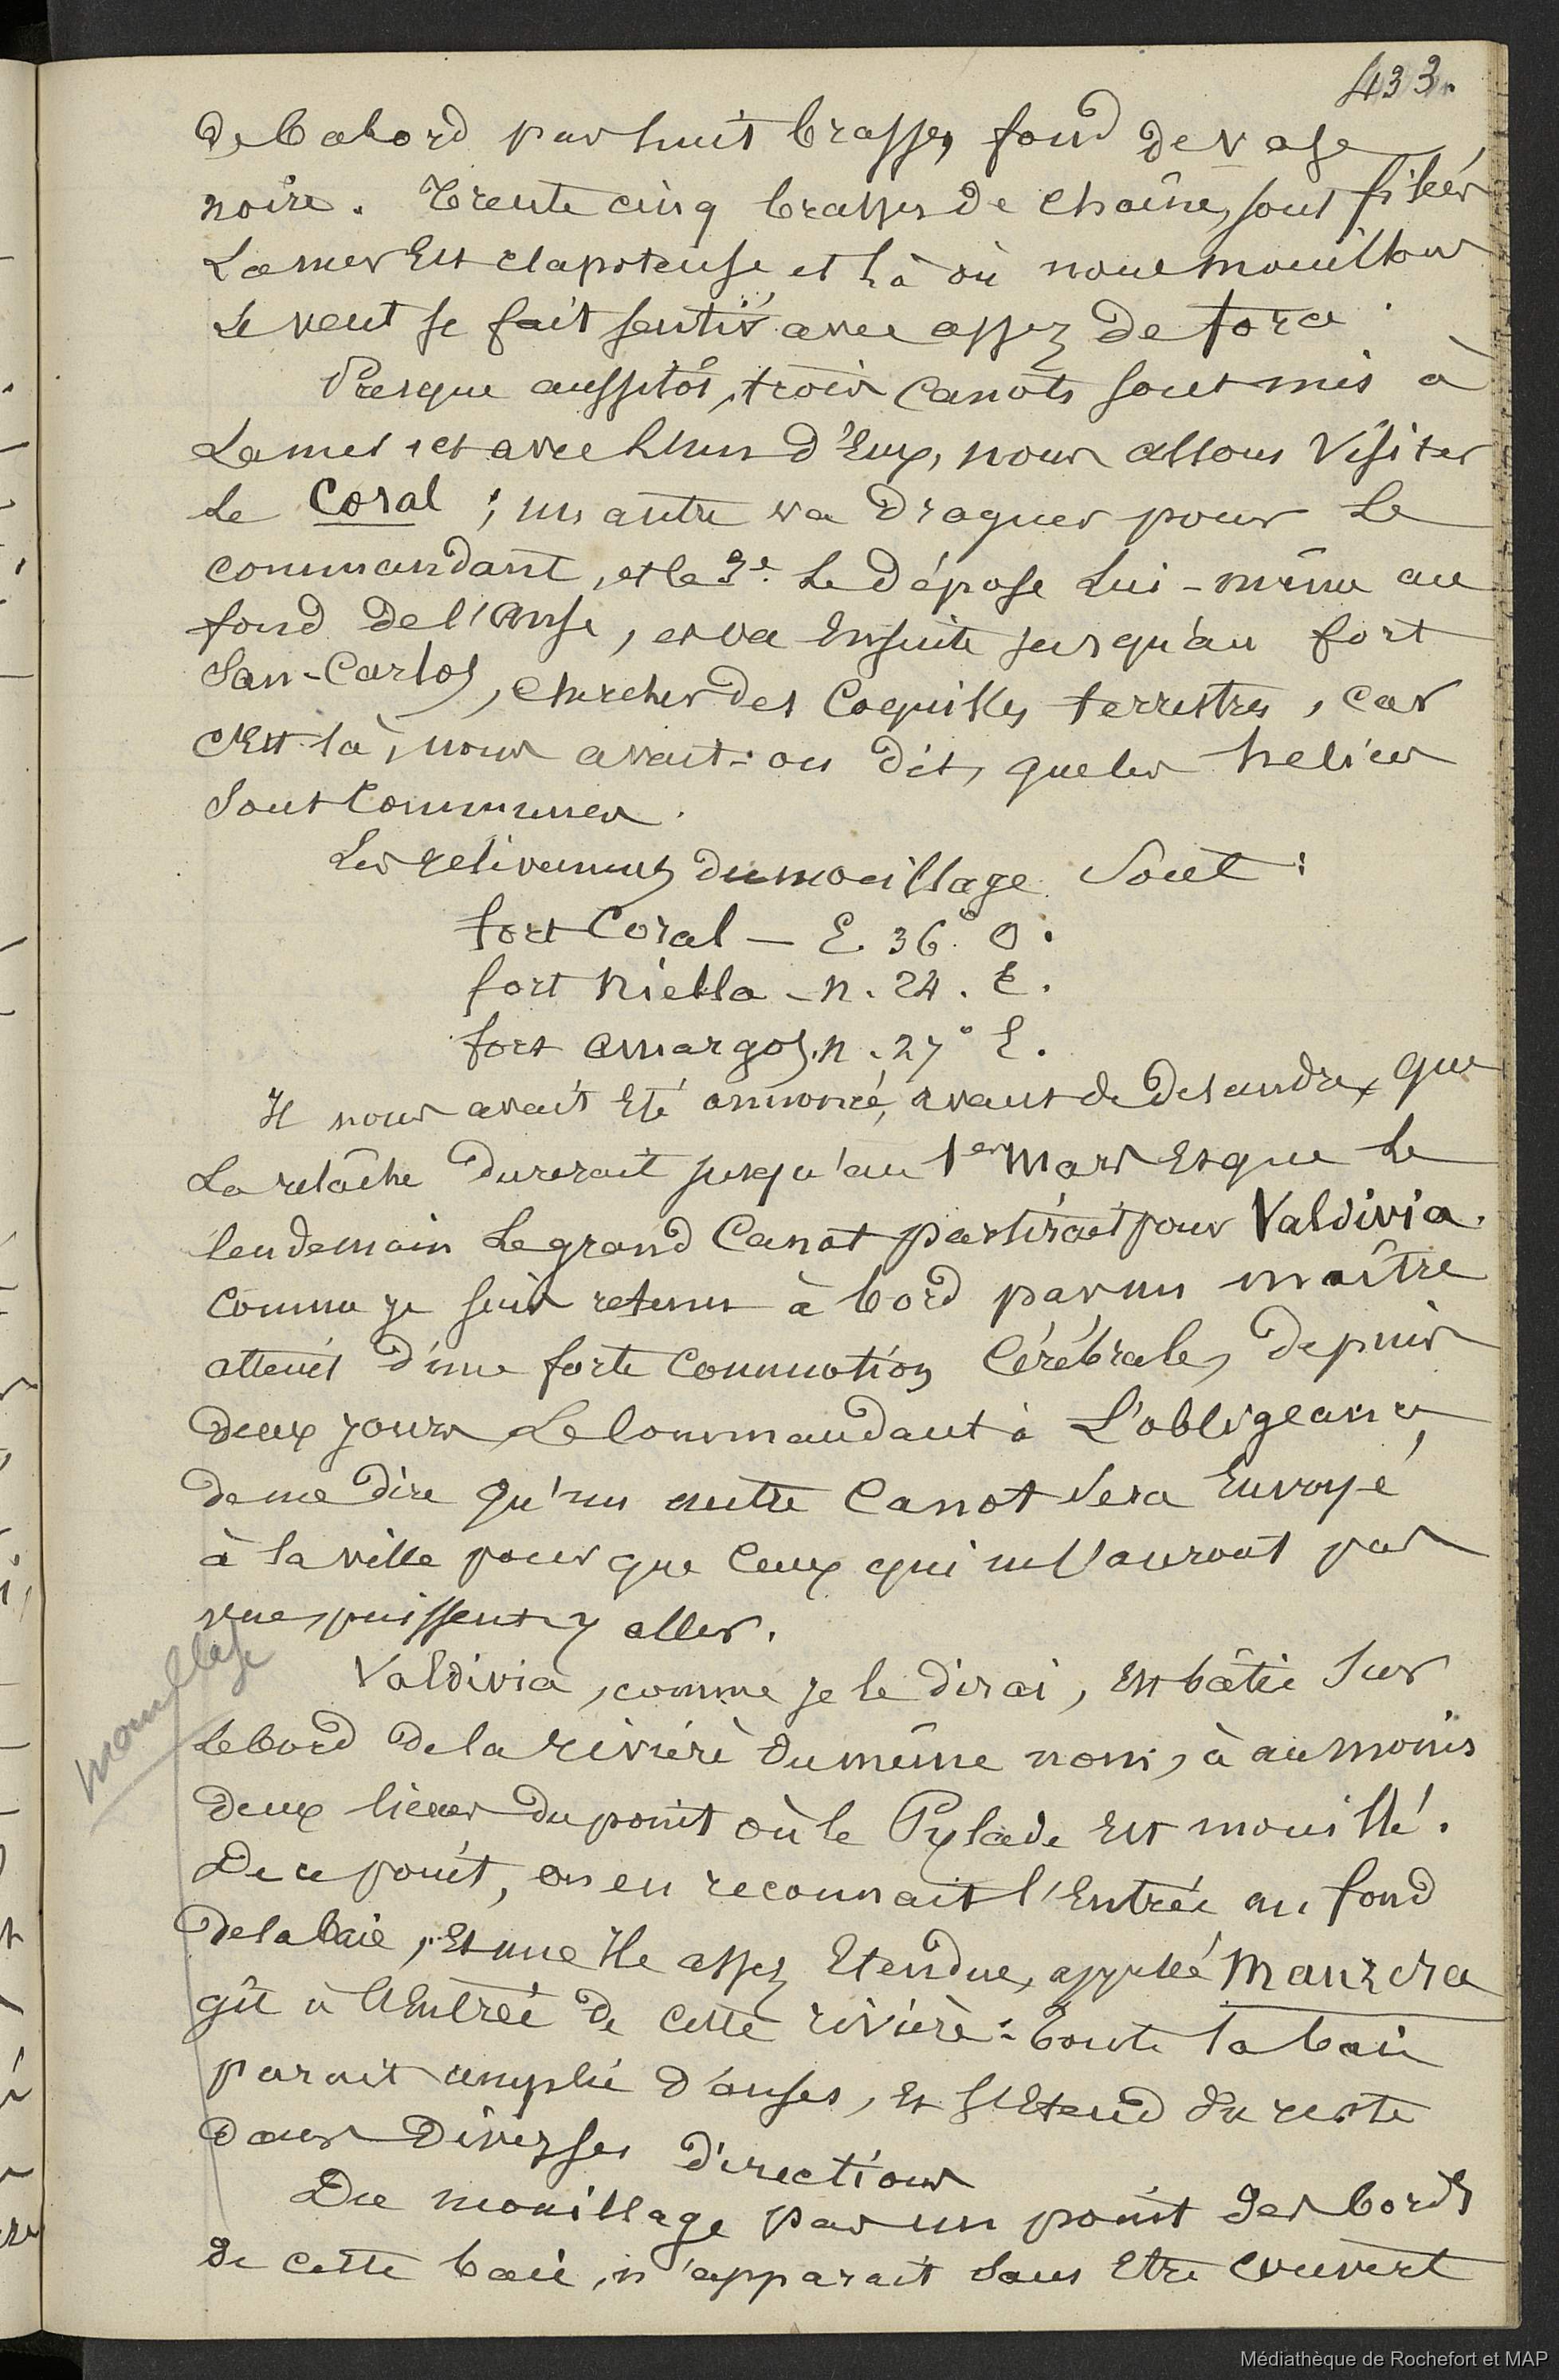 433.
de babord par huit brasses fond de vase
noire. Trente cinq brasses de chaîne, sont filées
La mer Est clapoteuse, et là où nous mouillons
Le vent se fait sentir avec assez de force.
Presque aussitôt, trois canots sont mis à
La mer, et avec l'un d'Eux, nous allons Visiter
Le Coral ; un autre va Draguer pour Le
commandant, et le 3e. Le dépose Lui-même au
fond de l'anse, et va Ensuite jusqu'au fort
San-Carlos, chercher des Coquilles terrestres, car
c'Est là, nous avait-on dit, que les helices
Sont Communes.
Les relèvements du mouillage Sont :
fort Coral — E. 36° O.
fort Niebla - N. 24. E.
fort amargos. N. 27° E.
Il nous avait Eté annoncé, avant de descendre, que
La relâche durerait jusqu'au 1er Mars Et que Le
lendemain Le grand Canot partirait pour Valdivia.
Comme je suis retenu à bord par un maître
atteint d'une forte Commotion Cérébrale, depuis
deux jours, Le Commandant a L'obligeance,
de me dire qu'un autre Canot Sera Envoyé
à la ville pour que Ceux qui ne l'auront pas
vue, puissent y aller.
mouillage
Valdivia, comme je le dirai, Est bâtie Sur
Le bord de la rivière du même nom, à au moins
deux lieues du point où le Pylade Est mouillé.
De ce point, on en reconnait l'Entrée au fond
de la baie, Et une Ile assez Etendue, appelée Manzera
gît à l'Entrée de cette rivière : Toute la baie
parait emplie d'anses, Et s'Etend du reste
dans Diverses directions
Du mouillage pas un point des bords
de cette baie, n'apparait sans Etre Couvert
Médiathèque de Rochefort et MAP